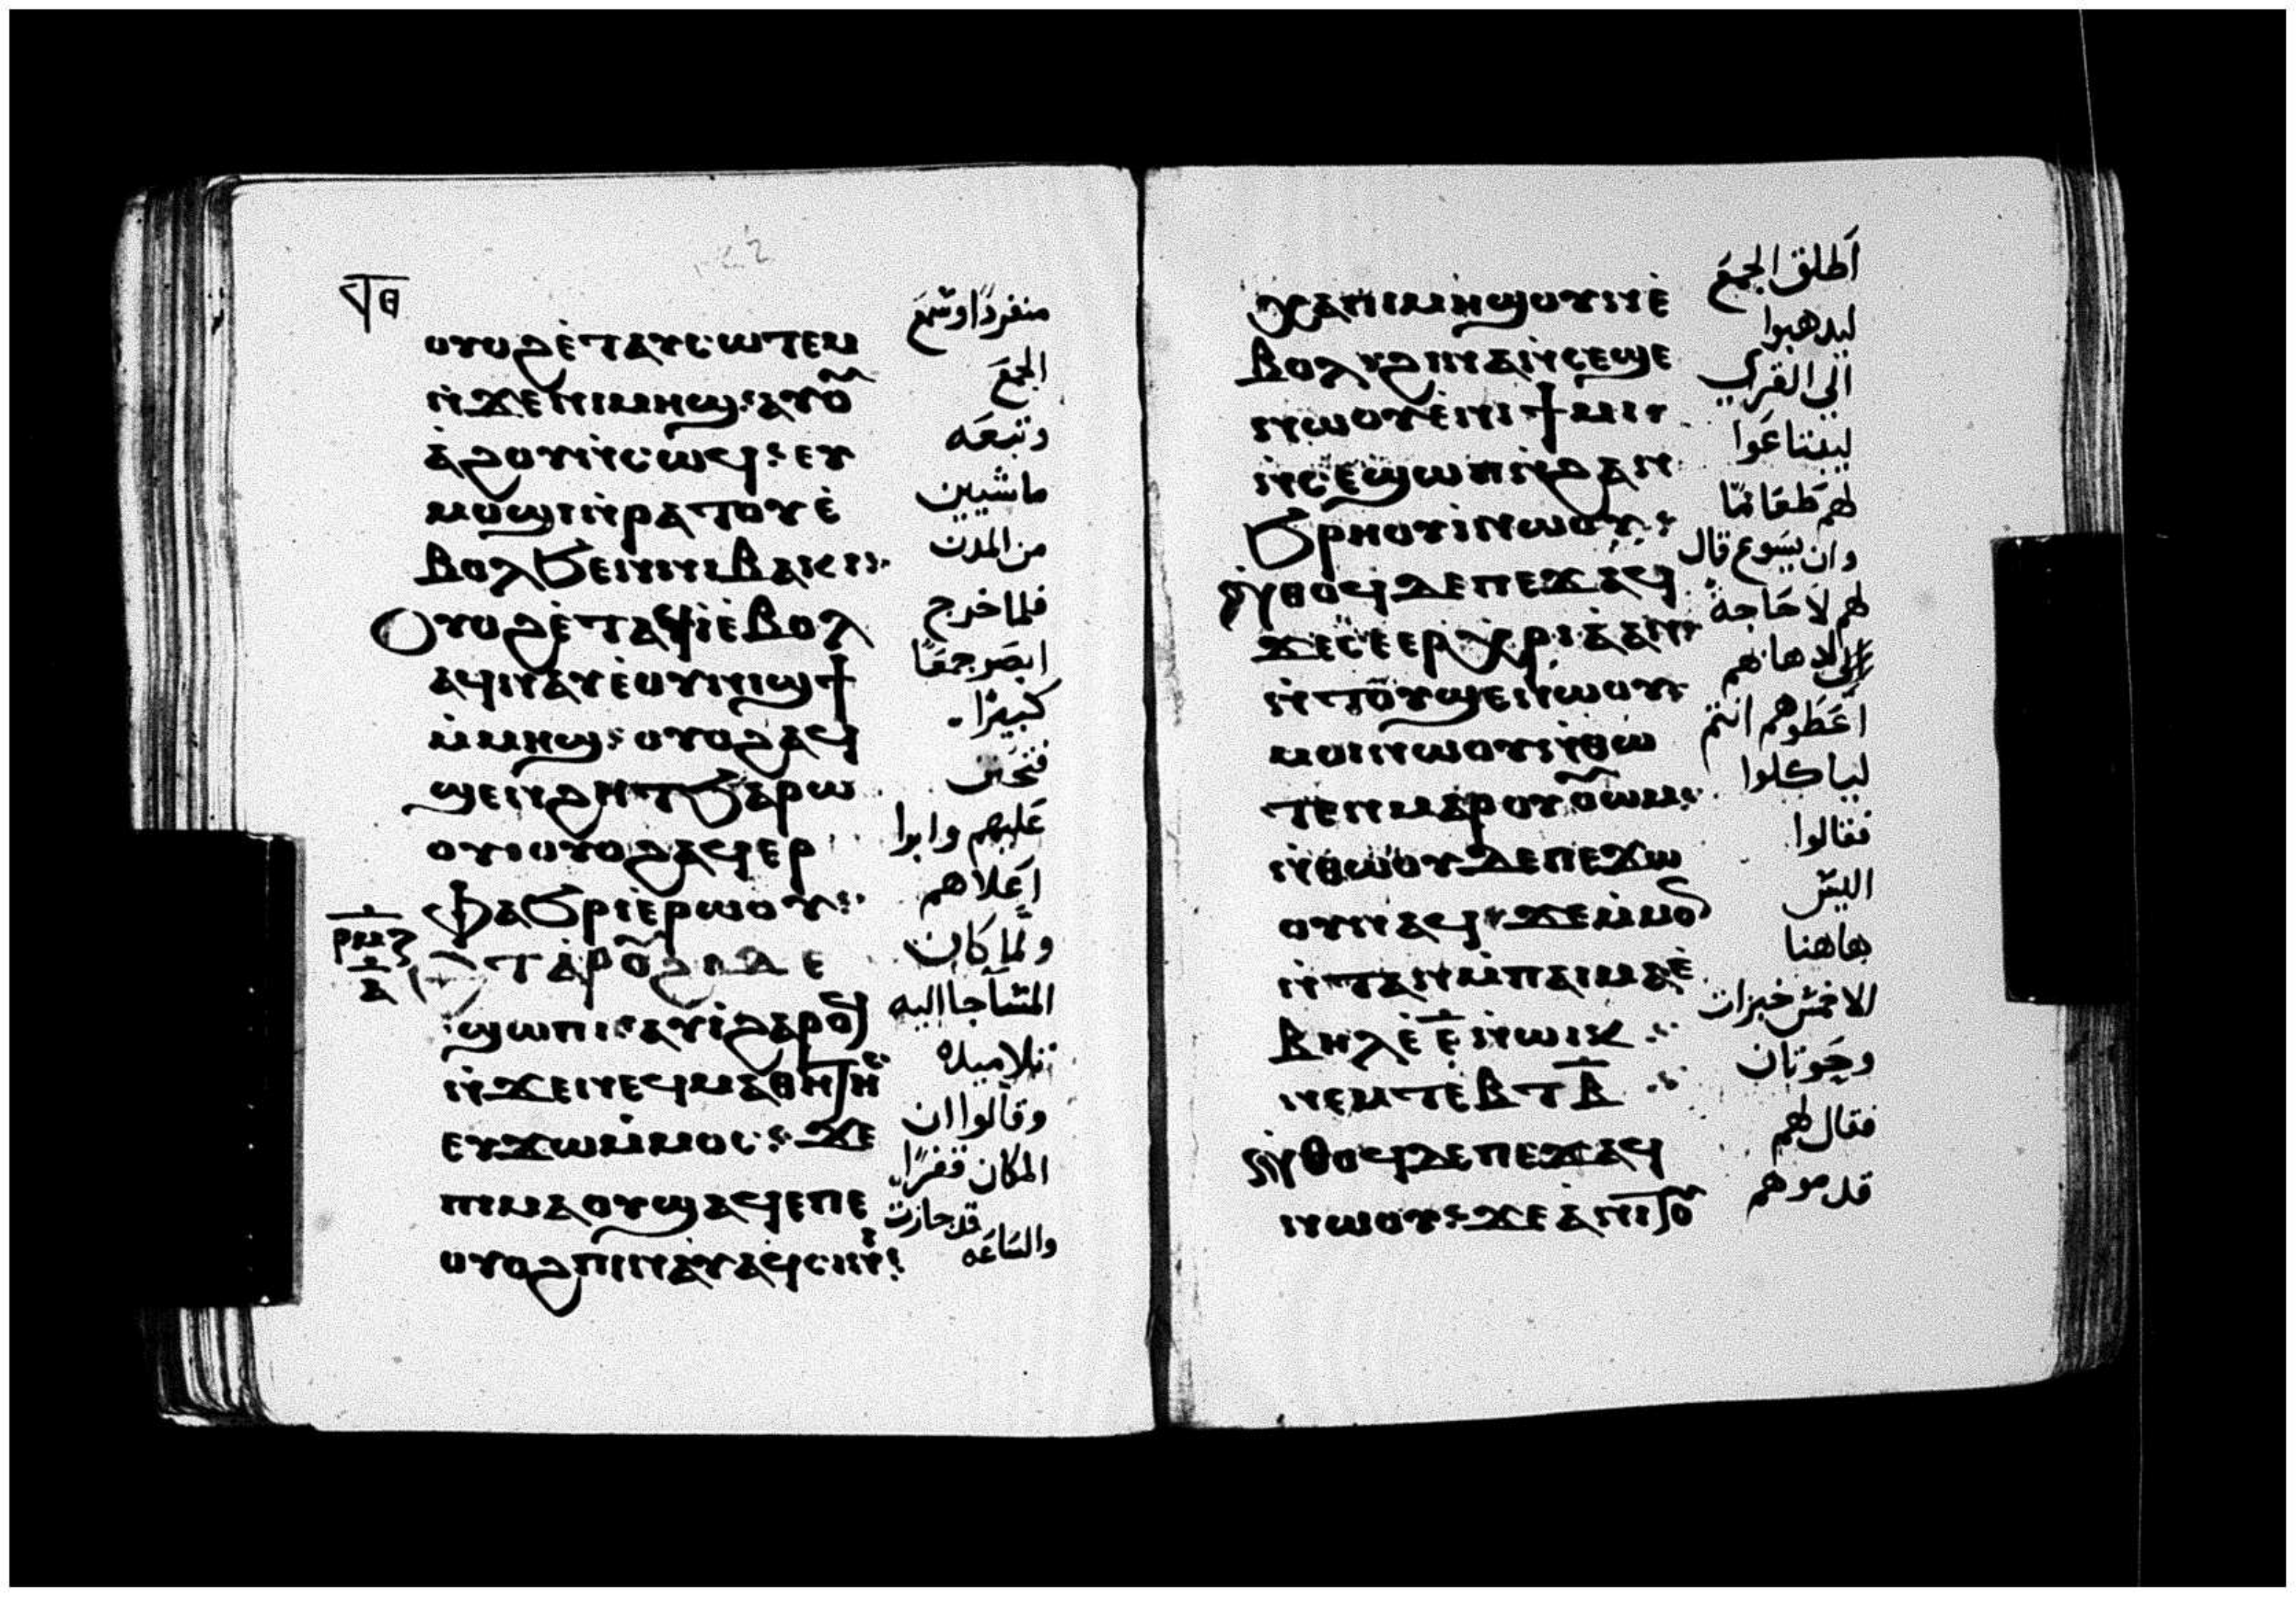 ϥⲑ
ⲟⲩⲟϩⲉ̇ⲧⲁⲩⲥⲱⲧⲉⲙ
ⲛ̇ϫⲉⲛⲓⲙⲏϣ: ⲁⲩⲟ
ⲁ̇ϩⲟⲩⲛ̇ⲥⲱϥ: ⲉⲩ
ⲙⲟϣⲓⲛ̇ⲣⲁⲧⲟⲩⲉ̇
ⲃⲟⲗϧⲉⲛⲛⲓⲃⲁⲕⲓ:
ⲟⲩⲟϩⲉ̇ⲧⲁϥⲓ̀ⲉ̇ⲃⲟⲗ
ⲁϥⲛⲁⲩⲉ̇ⲟⲩⲛⲓϣϯ
ⲙ̇ⲙⲏϣ: ⲟⲩⲟϩⲁϥ
ϣⲉⲛϩⲏⲧϧⲁⲣⲱ
ⲟⲩ: ⲟⲩⲟϩⲁϥⲉⲣ
ⲫⲁϧⲣⲓⲉ̇ⲣⲱⲟⲩ:
ⲣⲙⲍ
ⲁ
ⲉⲧⲁⲣⲟⲩϩⲓⲇⲉ
ϣⲱⲡⲓ: ⲁⲩⲓ̀ϩⲁⲣⲟϥ
ⲛ̇ϫⲉⲛⲉϥⲙⲁⲑⲏⲧⲏⲥ
ⲉⲩϫⲱⲙ̇ⲙⲟⲥ: ϫⲉ
ⲡⲓⲙⲁⲟⲩϣⲁϥⲉⲡⲉ
ⲟⲩⲟϩⲡⲓⲛⲁⲩⲁϥⲥⲓⲛⲓ:
منفردًا وسَمعَ
الجمعَ
وتبعَه
ماشيين
من المدن
فلما خرج
ابصَر جمعًا
كبيرًا.
فتحنن
عَليهم وابوا
اعَلاهم
ولما كان
المسَآ جااليه
تلاميده
وقالوا ان
المكان قفرًا
والسَاعَه قد جازت
ⲭⲁⲛⲓⲙⲏϣⲟⲩⲛⲉ̇
ⲃⲟⲗϩⲓⲛⲁⲛ̇ⲥⲉϣⲉ
ⲛⲱⲟⲩⲉ̇ⲛⲓϯⲙⲓ
ⲛ̇ⲥⲉϣⲱⲡⲛ̇ϩⲁⲛ
ϧⲣⲏⲟⲩⲓ̀ⲛⲱⲟⲩ:
ⲛ̇ⲑⲟϥⲇⲉⲡⲉϫⲁϥ
ϫⲉⲥⲉⲉⲣⲭⲣⲓⲁ̇ⲁⲛ
ⲛ̇ⲧⲟⲩϣⲉⲛⲱⲟⲩ:
ⲙⲟⲓⲛⲱⲟⲩⲛ̇ⲑⲱ
ⲧⲉⲛⲙⲁⲣⲟⲩⲟⲩⲱⲙ:
ⲛ̇ⲑⲱⲟⲩⲇⲉⲡⲉϫⲱ
ⲟⲩⲛⲁϥ: ϫⲉⲙ̇ⲙⲟ
ⲛ̇ⲧⲁⲛⲙ̇ⲡⲁⲓⲙⲁⲉ̇
ⲃⲏⲗⲉ̇ⲉ̅ⲛ̇ⲱⲓⲕ:
ⲛⲉⲙⲧⲉⲃⲧⲃ̅:
ⲛ̇ⲑⲟϥⲇⲉⲡⲉϫⲁϥ
ⲛⲱⲟⲩ: ϫⲉⲁ̇ⲛⲓⲧⲟⲩ
اَطلق الجمعَ
ليدهبوا
الي القري
ليبتاعَوا
لهم طعَامًا
وان يسَوع قال
لهم لا حَاجة
لدهابهم
اعَطوهم انتم
لياكلوا
فقالوا
اليسَ
هاهنا
الا خمسَ خبزات
وحَوتان
فقال لهم
قدموهم